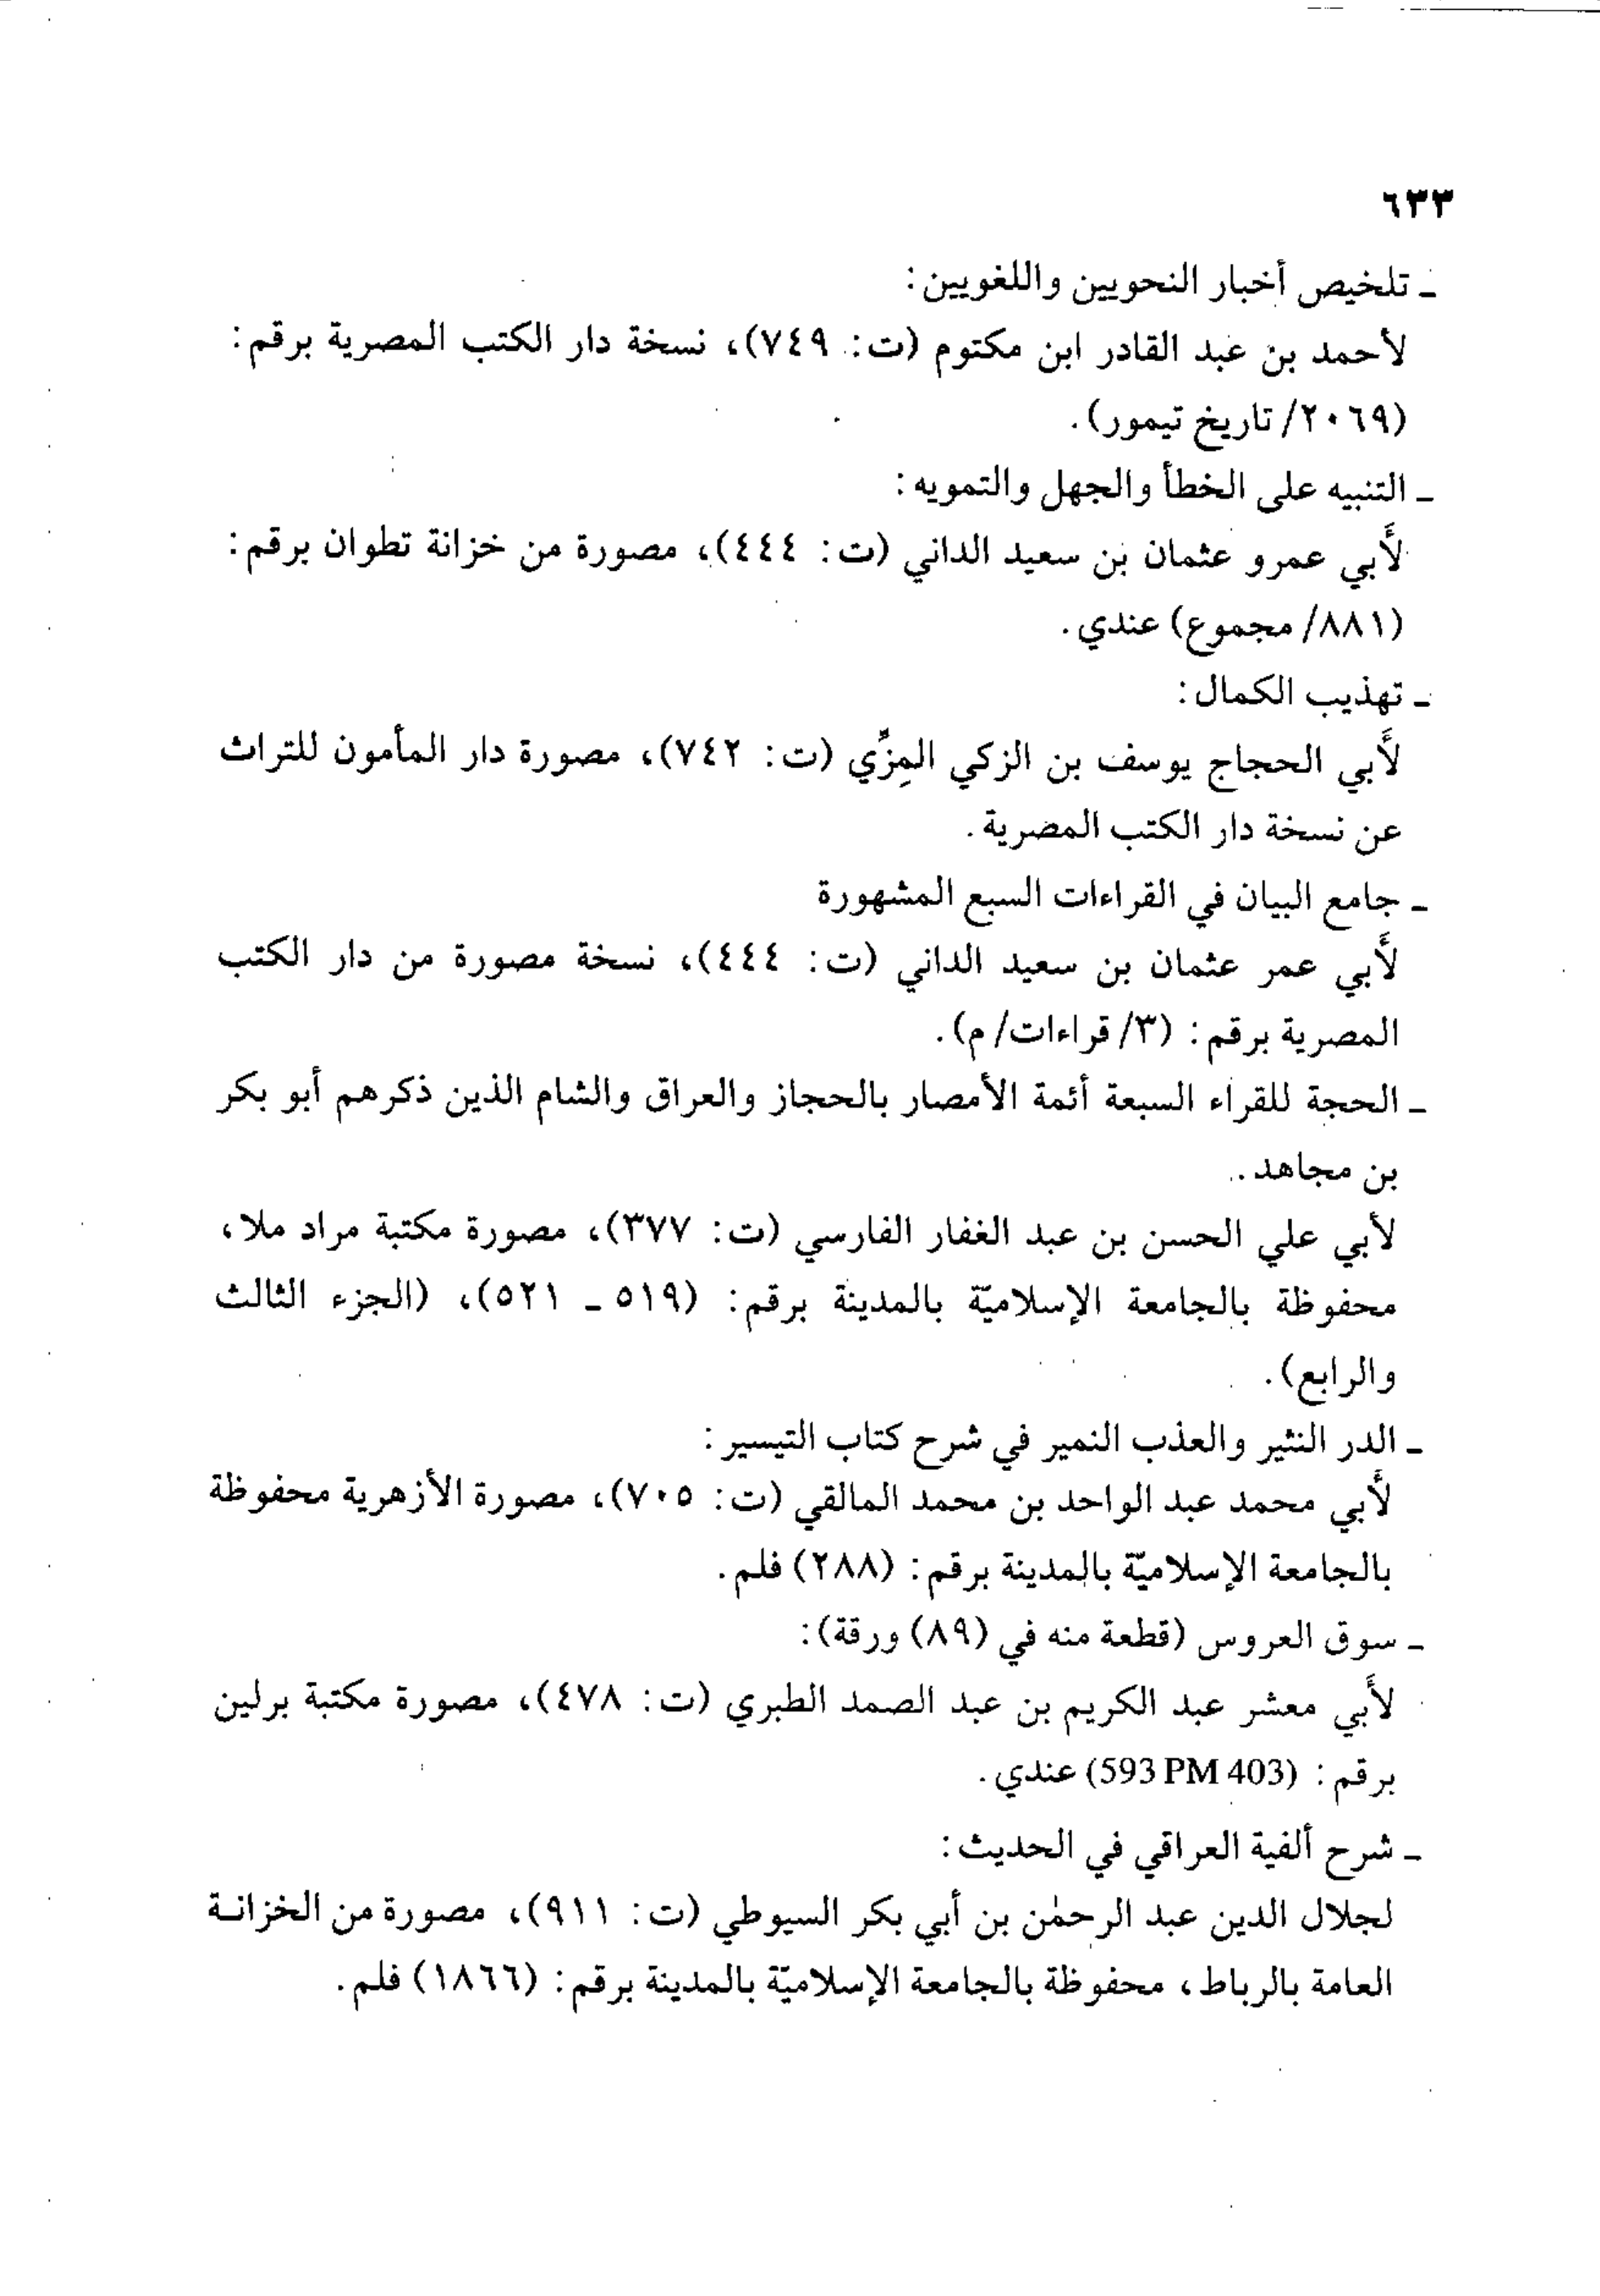 ٦٣٣
ـ تلخيص أخبار النحويين واللغويين:
لأحمد بن عبد القادر ابن مكتوم (ت: ٧٤٩)، نسخة دار الكتب المصرية برقم:
(٢٠٦٩/ تاريخ تيمور).
ـ التنبيه على الخطأ والجهل والتمويه:
لأَبي عمرو عثمان بن سعيد الداني (ت: ٤٤٤)، مصورة من خزانة تطوان برقم:
(٨٨١/ مجموع) عندي.
ـ تهذيب الكمال:
لأَبي الحجاج يوسف بن الزكي المِزِّي (ت: ٧٤٢)، مصورة دار المأمون للتراث
عن نسخة دار الكتب المصرية.
ـ جامع البيان في القراءات السبع المشهورة
لأَبي عمر عثمان بن سعيد الداني (ت: ٤٤٤)، نسخة مصورة من دار الكتب
المصرية برقم: (٣/ قراءات/ م).
ـ الحجة للقراء السبعة أئمة الأمصار بالحجاز والعراق والشام الذين ذكرهم أبو بكر
بن مجاهد.
لأبي علي الحسن بن عبد الغفار الفارسي (ت: ٣٧٧)، مصورة مكتبة مراد ملا،
محفوظة بالجامعة الإسلاميّة بالمدينة برقم: (٥١٩ ـ ٥٢١)، (الجزء الثالث
والرابع).
ـ الدر النثير والعذب النمير في شرح كتاب التيسير:
لأَبي محمد عبد الواحد بن محمد المالقي (ت: ٧٠٥)، مصورة الأزهرية محفوظة
بالجامعة الإسلاميّة بالمدينة برقم: (٢٨٨) فلم.
ـ سوق العروس (قطعة منه في (٨٩) ورقة):
لأَبي معشر عبد الكريم بن عبد الصمد الطبري (ت: ٤٧٨)، مصورة مكتبة برلين
برقم: (593 PM 403) عندي.
ـ شرح ألفية العراقي في الحديث:
لجلال الدين عبد الرحمٰن بن أبي بكر السيوطي (ت: ٩١١)، مصورة من الخزانة
العامة بالرباط، محفوظة بالجامعة الإسلاميّة بالمدينة برقم: (١٨٦٦) فلم.